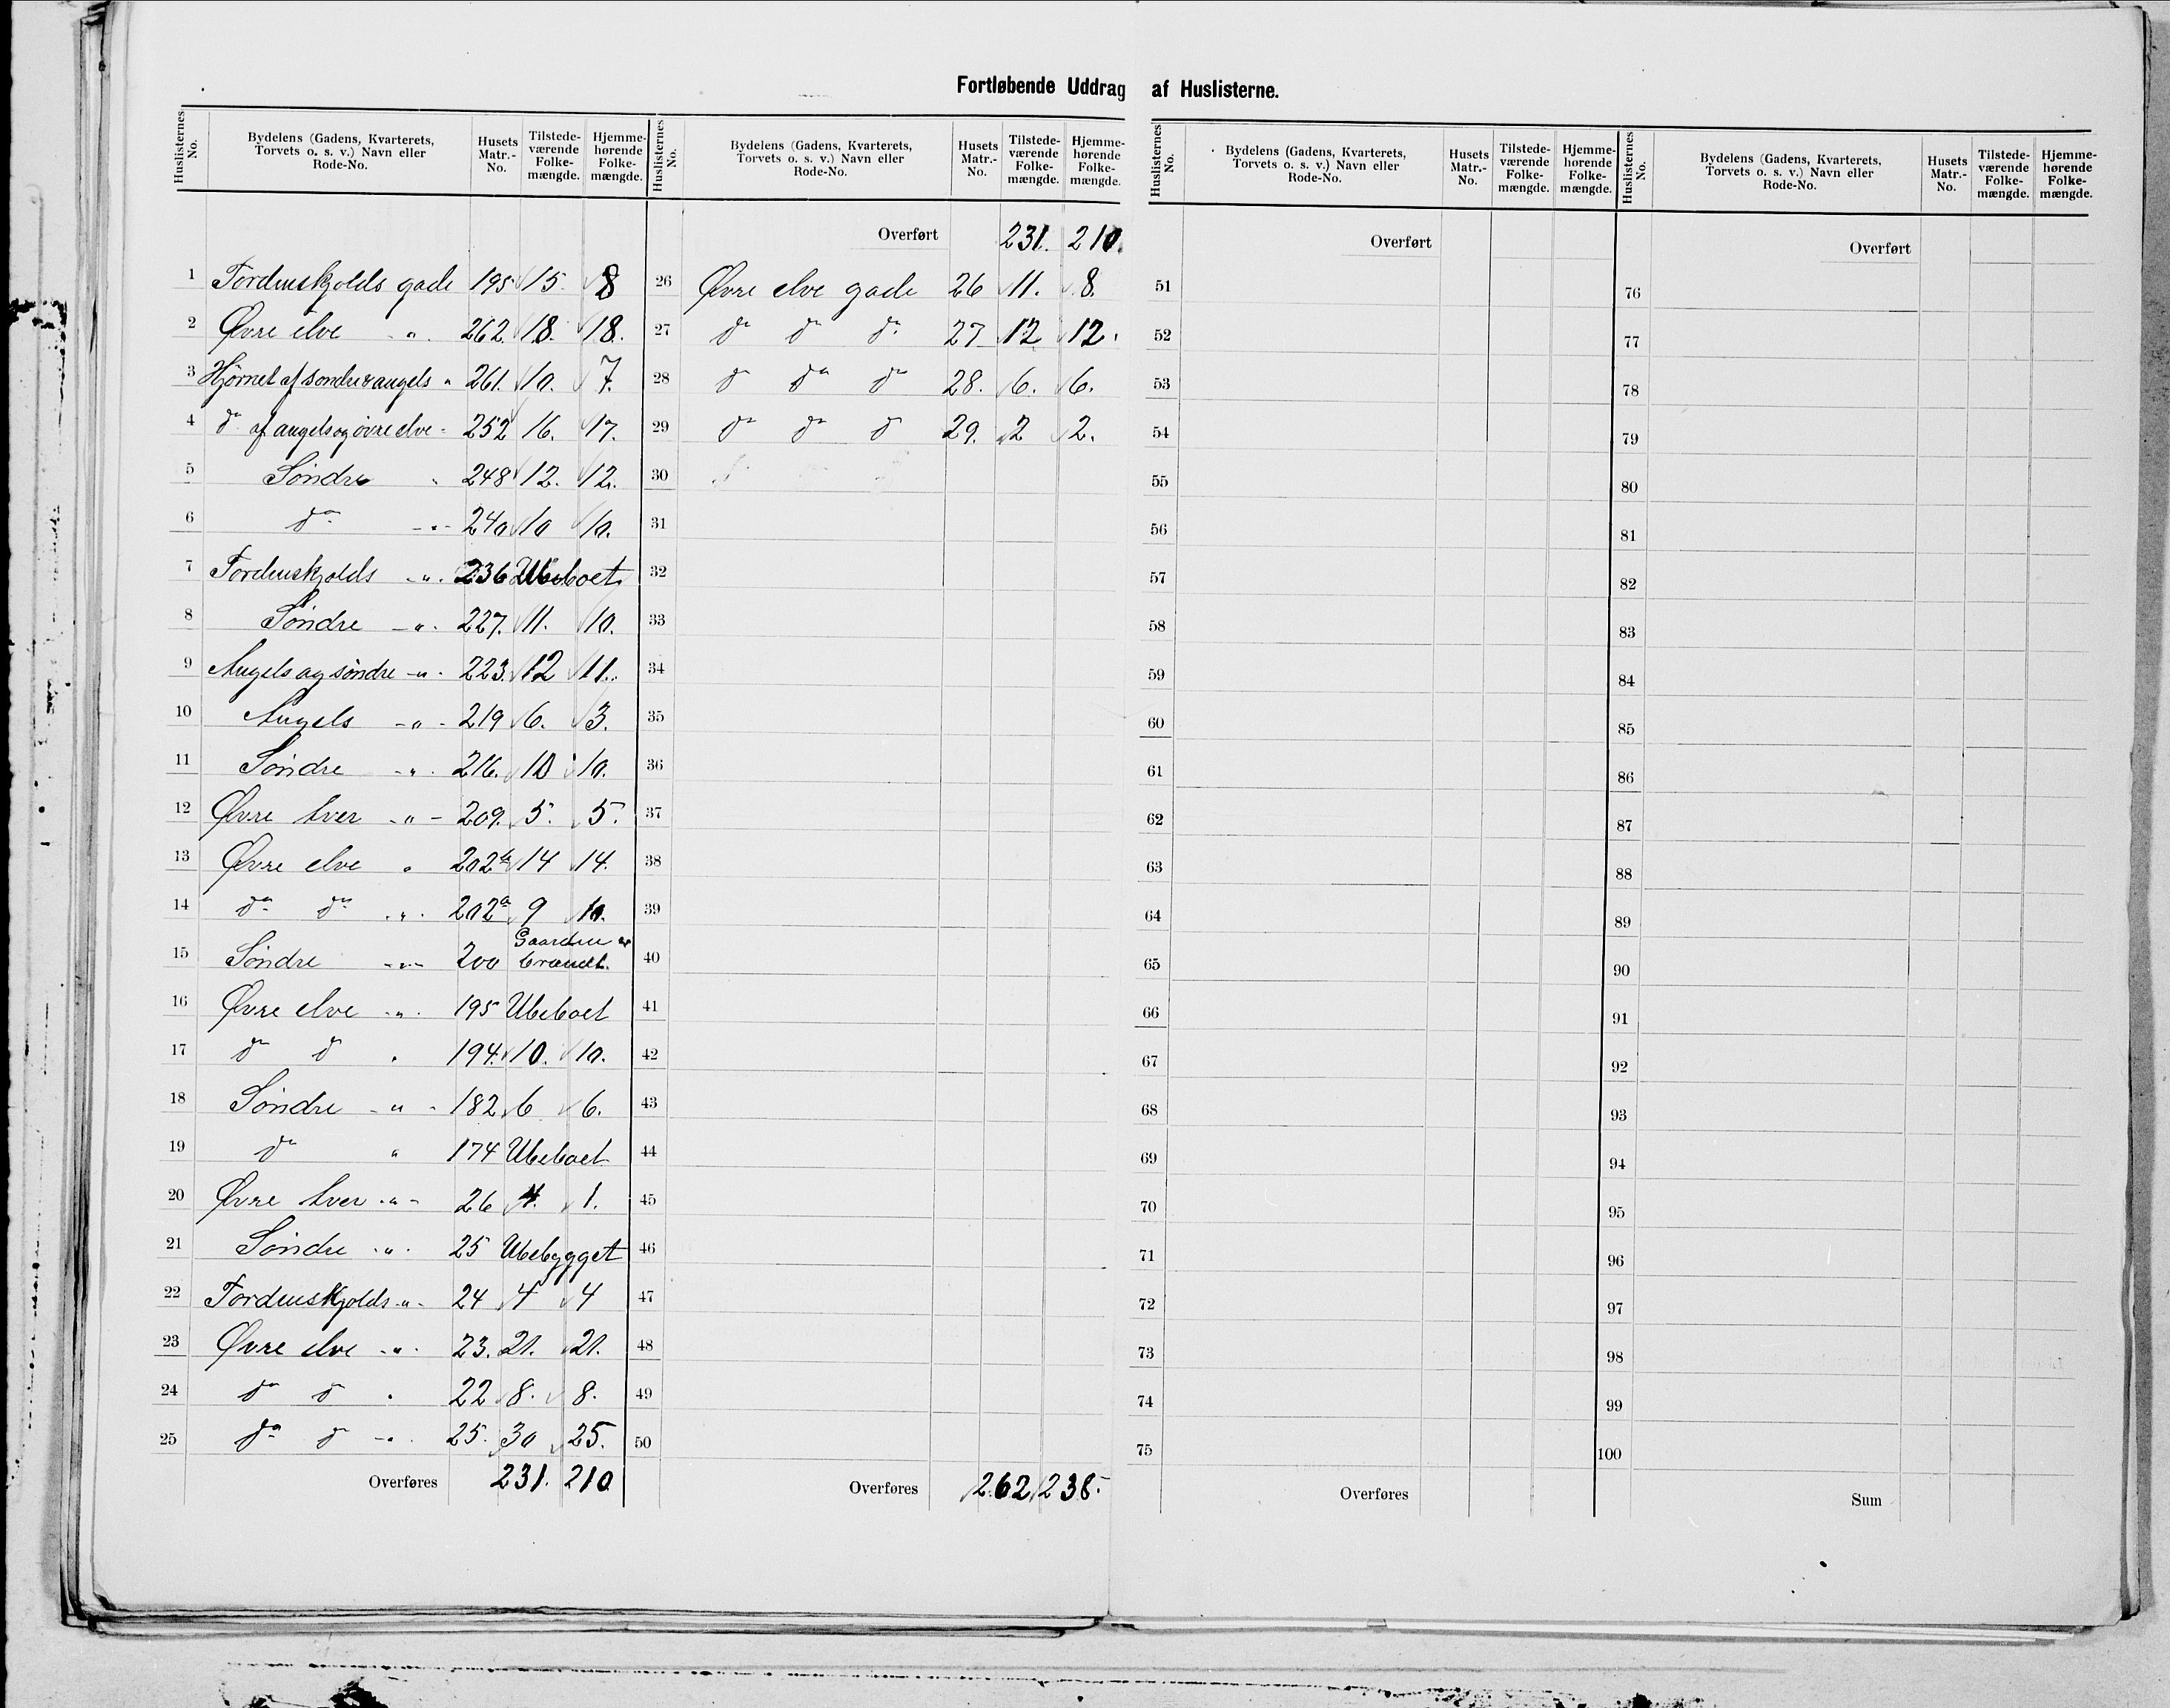 Fortløbende Uddrag af Huslisterne.
Huslisternes No. Bydelens (Gadens, Kvarterets, Torvets o. s. v.) Navn eller Rode-No. Husets Matr.-No. Tilstedeværende Folkemængde. Hjemmehørende Folkemængde.
1 Tordenskjolds gade 195 15. 8
2 Øvre elve " 262. 18. 18.
3 Hjørnet af søndre & angels " 261. 10. 7.
4 do af angels og øvre elve " 252 16. 17.
5 Søndre " 248 12. 12.
6 do " 240 10 10.
7 Tordenskjolds " 236 Ubeboet
8 Søndre " 227. 11. 10.
9 Angels og søndre " 223. 12 11.
10 Angels " 219 6. 3.
11 Søndre " 216. 10 10.
12 Øvre tver " 209. 5. 5.
13 Øvre elve " 202b 14 14.
14 do do " 202a 9 10.
15 Søndre " 200 Gaarden er brændt.
16 Øvre elve " 195 Ubeboet
17 do do " 194. 10. 10.
18 Søndre " 182 6 6.
19 do " 174 Ubeboet
20 Øvre tver " 26 4. 1.
21 Søndre " 25 Ubebygget
22 Tordenskjolds " 24 4 4
23 Øvre elve " 23. 21. 21.
24 do do " 22 8. 8.
25 do do " 25. 30 25.
Overføres 231. 210
Huslisternes No. Bydelens (Gadens, Kvarterets, Torvets o. s. v.) Navn eller Rode-No. Husets Matr.-No. Tilstedeværende Folkemængde. Hjemmehørende Folkemængde.
Overført 231. 210.
26 Øvre elve gade 26 11. 8.
27 do do do 27 12 12.
28 do do do 28. 6. 6.
29 do do do 29. 2 2.
30
31
32
33
34
35
36
37
38
39
40
41
42
43
44
45
46
47
48
49
50
Overføres 262 238.
Huslisternes No. Bydelens (Gadens, Kvarterets, Torvets o. s. v.) Navn eller Rode-No. Husets Matr.-No. Tilstedeværende Folkemængde. Hjemmehørende Folkemængde.
Overført
51
52
53
54
55
56
57
58
59
60
61
62
63
64
65
66
67
68
69
70
71
72
73
74
75
Overføres
Huslisternes No. Bydelens (Gadens, Kvarterets, Torvets o. s. v.) Navn eller Rode-No. Husets Matr.-No. Tilstedeværende Folkemængde. Hjemmehørende Folkemængde.
Overført
76
77
78
79
80
81
82
83
84
85
86
87
88
89
90
91
92
93
94
95
96
97
98
99
100
Sum